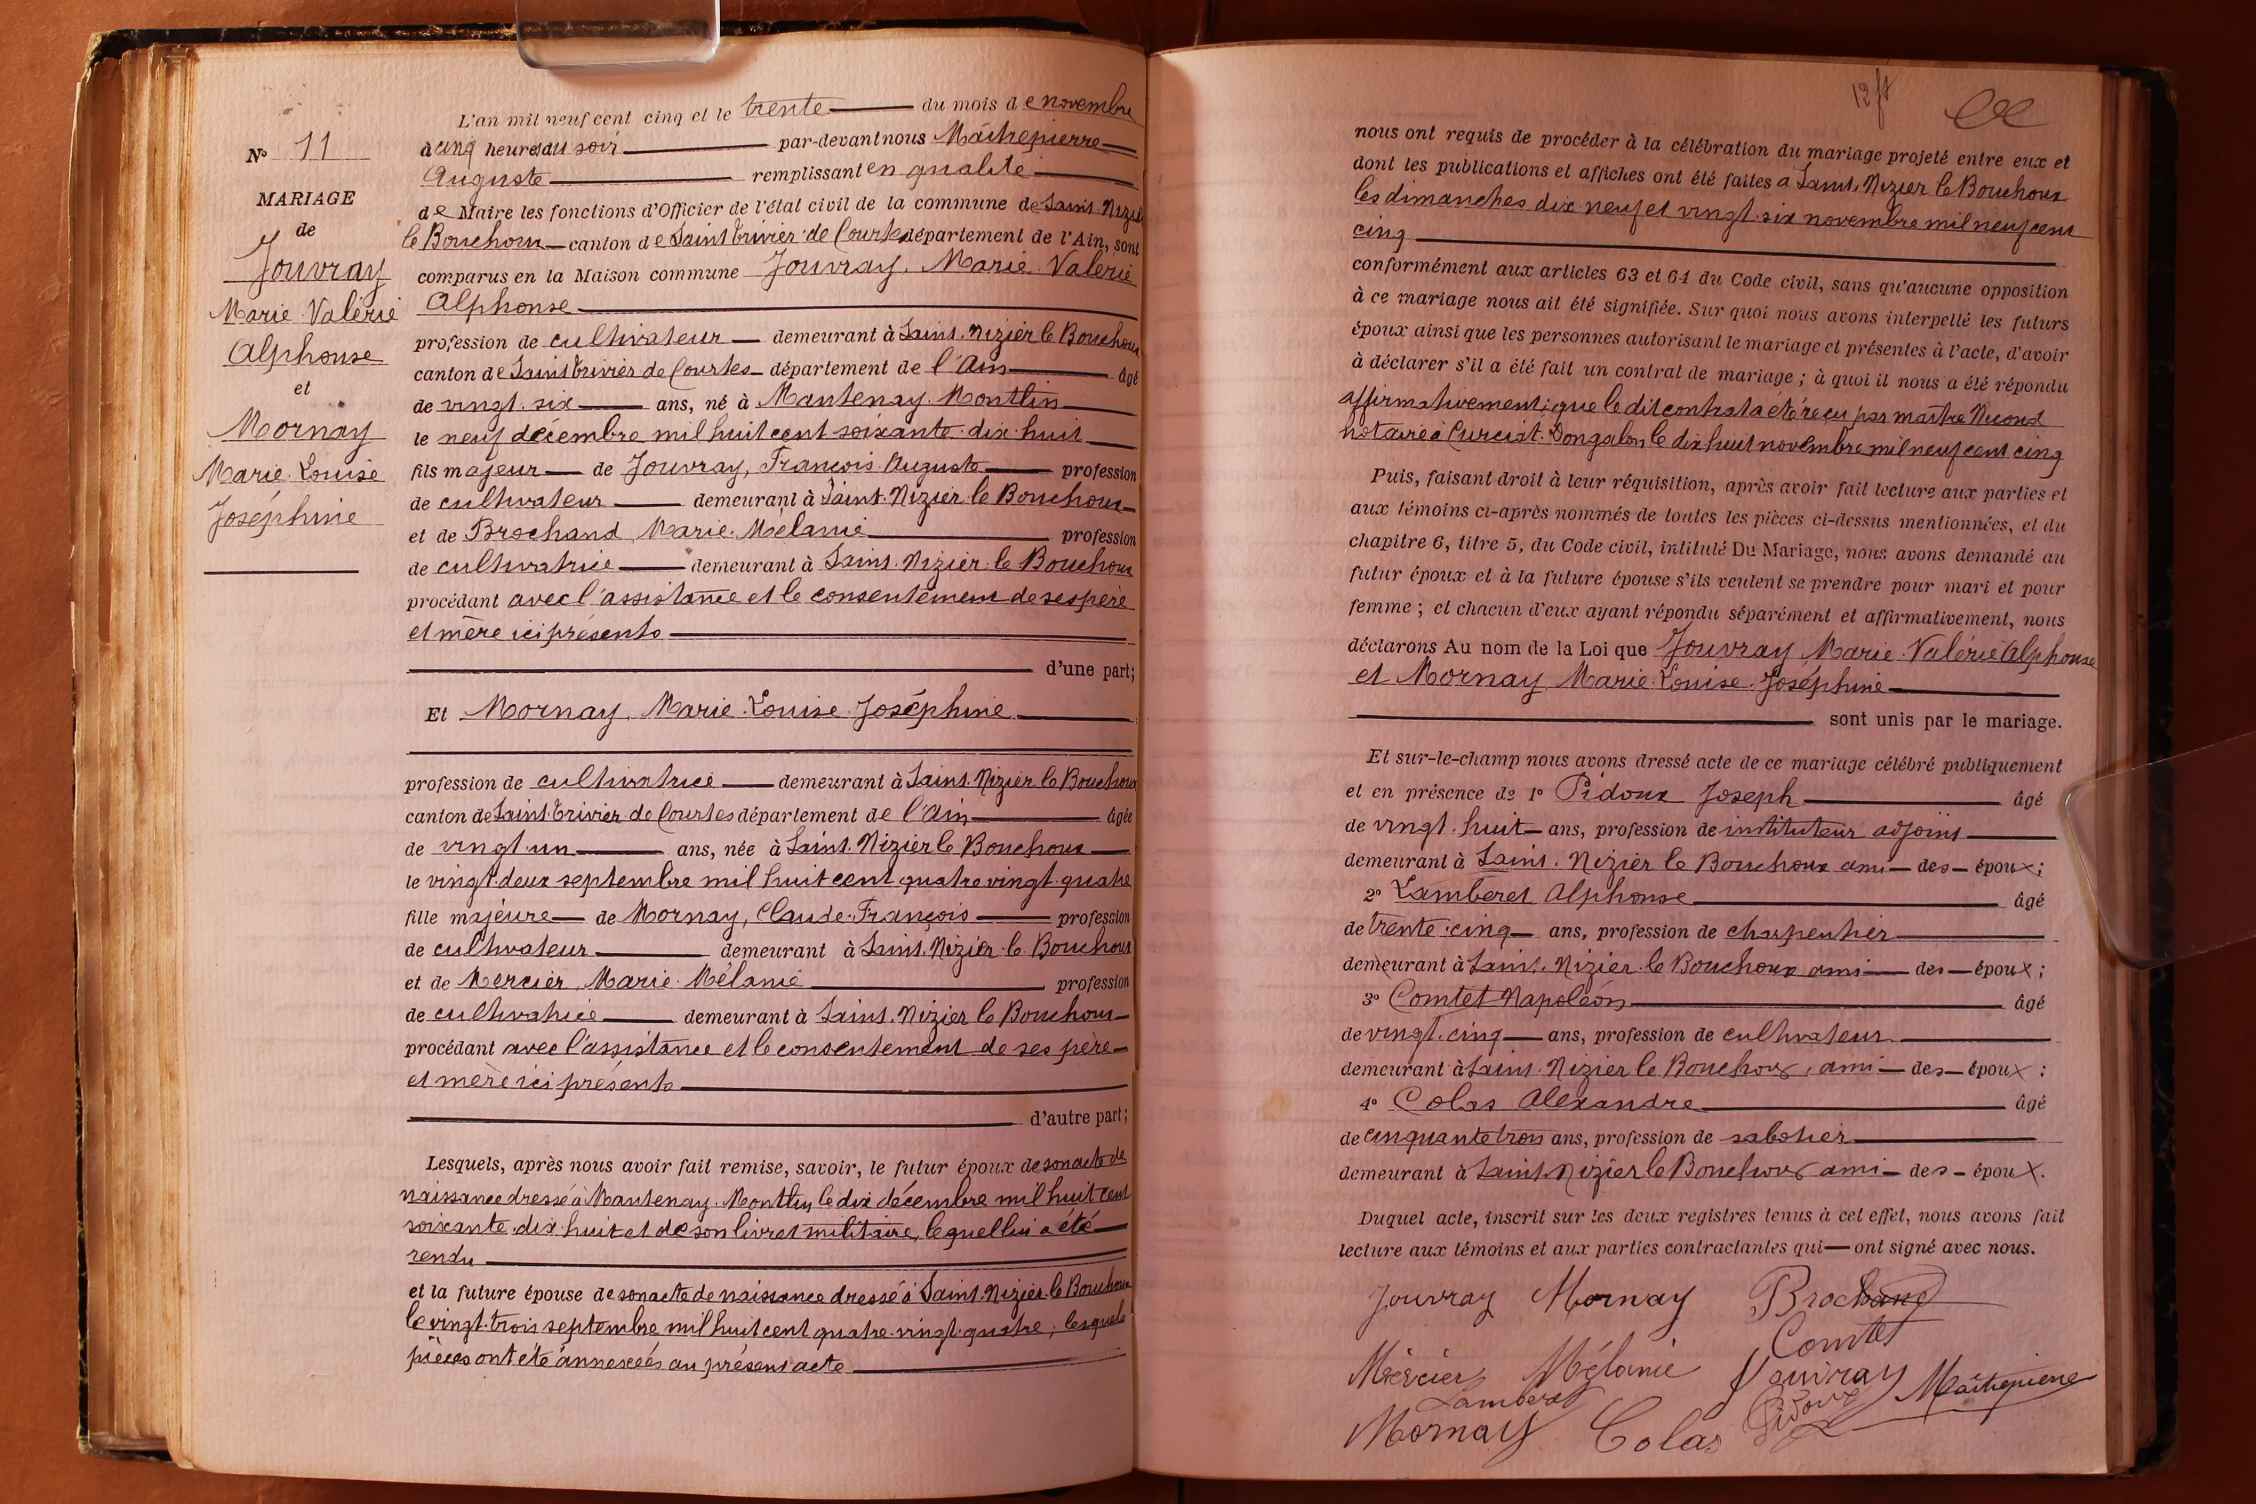 L'an mil neuf cent cinq et le trente du mois de novembre
N° 11
à cinq heures du soir par-devant nous Maîtrepierre
Auguste remplissant en qualité
MARIAGE
de Maire les fonctions d'Officier de l'état civil de la commune de Saint-Nizier
de
le Bouchoux canton de Saint Trivier de Courtes département de l'Ain, sont
Jouvray
comparus en la Maison commune Jouvray, Marie Valérie
Marie Valérie
Alphonse
Alphonse
profession de cultivateur demeurant à Saint-Nizier le Bouchoux
et
canton de Saint Trivier de Courtes département de l'Ain âgé
Mornay
de vingt-six ans, né à Mantenay-Montlin
le neuf décembre mil huit cent soixante-dix-huit
Marie-Louise
fils majeur de Jouvray, François Auguste profession
Joséphine
de cultivateur demeurant à Saint-Nizier le Bouchoux
et de Brochand Marie-Mélanie profession
de cultivatrice demeurant à Saint-Nizier-le Bouchoux
procédant avec l'assistance et le consentement de ses père
et mère ici présents
d'une part;
Et Mornay, Marie-Louise Joséphine
profession de cultivatrice demeurant à Saint-Nizier le Bouchoux
canton de Saint-Trivier de Courtes département de l'Ain âgée
de vingt-un ans, née à Saint-Nizier le Bouchoux
le vingt-deux septembre mil huit cent quatre vingt-quatre
fille majeure de Mornay, Claude-François profession
de cultivateur demeurant à Saint-Nizier-le Bouchoux
et de Mercier Marie-Mélanie profession
de cultivatrice demeurant à Saint-Nizier le Bouchoux
procédant avec l'assistance et le consentement de ses père
et mère ici présents
d'autre part;
Lesquels, après nous avoir fait remise, savoir, le futur époux de son acte de
naissance dressé à Mantenay-Montlin le dix décembre mil huit cent
soixante-dix-huit et de son livret militaire, lequel lui a été
rendu
et la future épouse de son acte de naissance dressé à Saint-Nizier-le Bouchoux
le vingt-trois septembre mil huit cent quatre-vingt-quatre; lesquels
pièces ont été annexées au présent acte
nous ont requis de procéder à la célébration du mariage projeté entre eux et
dont les publications et affiches ont été faites à Saint-Nizier le Bouchoux
les dimanches dix neuf et vingt-six novembre mil neuf cent
cinq
conformément aux articles 63 et 64 du Code civil, sans qu'aucune opposition
à ce mariage nous ait été signifiée. Sur quoi nous avons interpellé les futurs
époux ainsi que les personnes autorisant le mariage et présentes à l'acte, d'avoir
à déclarer s'il a été fait un contrat de mariage; à quoi il nous a été répondu
affirmativement; que le dit contrat a été reçu par maître
notaire à Curciat-Dongalon le dix huit novembre mil neuf cent cinq
Puis, faisant droit à leur réquisition, après avoir fait lecture aux parties et
aux témoins ci-après nommés de toutes les pièces ci-dessus mentionnées, et du
chapitre 6, titre 5, du Code civil, intitulé Du Mariage, nous avons demandé au
futur époux et à la future épouse s'ils veulent se prendre pour mari et pour
femme; et chacun d'eux ayant répondu séparément et affirmativement, nous
déclarons Au nom de la Loi que Jouvray Marie-Valérie Alphonse
et Mornay Marie-Louise-Joséphine
sont unis par le mariage.
Et sur-le-champ nous avons dressé acte de ce mariage célébré publiquement
et en présence de 1° Pidoux Joseph âgé
de vingt-huit ans, profession de instituteur adjoint
demeurant à Saint-Nizier le Bouchoux ami des époux;
2° Lamberet Alphonse âgé
de trente-cinq ans, profession de charpentier
demeurant à Saint-Nizier-le Bouchoux ami des époux;
3° Comtet Napoléon âgé
de vingt-cinq ans, profession de cultivateur
demeurant à Saint-Nizier le Bouchoux, ami des époux;
4° Colas Alexandre âgé
de cinquante trois ans, profession de sabotier
demeurant à Saint-Nizier le Bouchoux ami des époux.
Duquel acte, inscrit sur les deux registres tenus à cet effet, nous avons fait
lecture aux témoins et aux parties contractantes qui ont signé avec nous.
Jouvray Mornay Brochand
Comtet
Mercier Mélanie Jouvray Maîtrepierre
Lamberet Pidoux
Mornay Colas